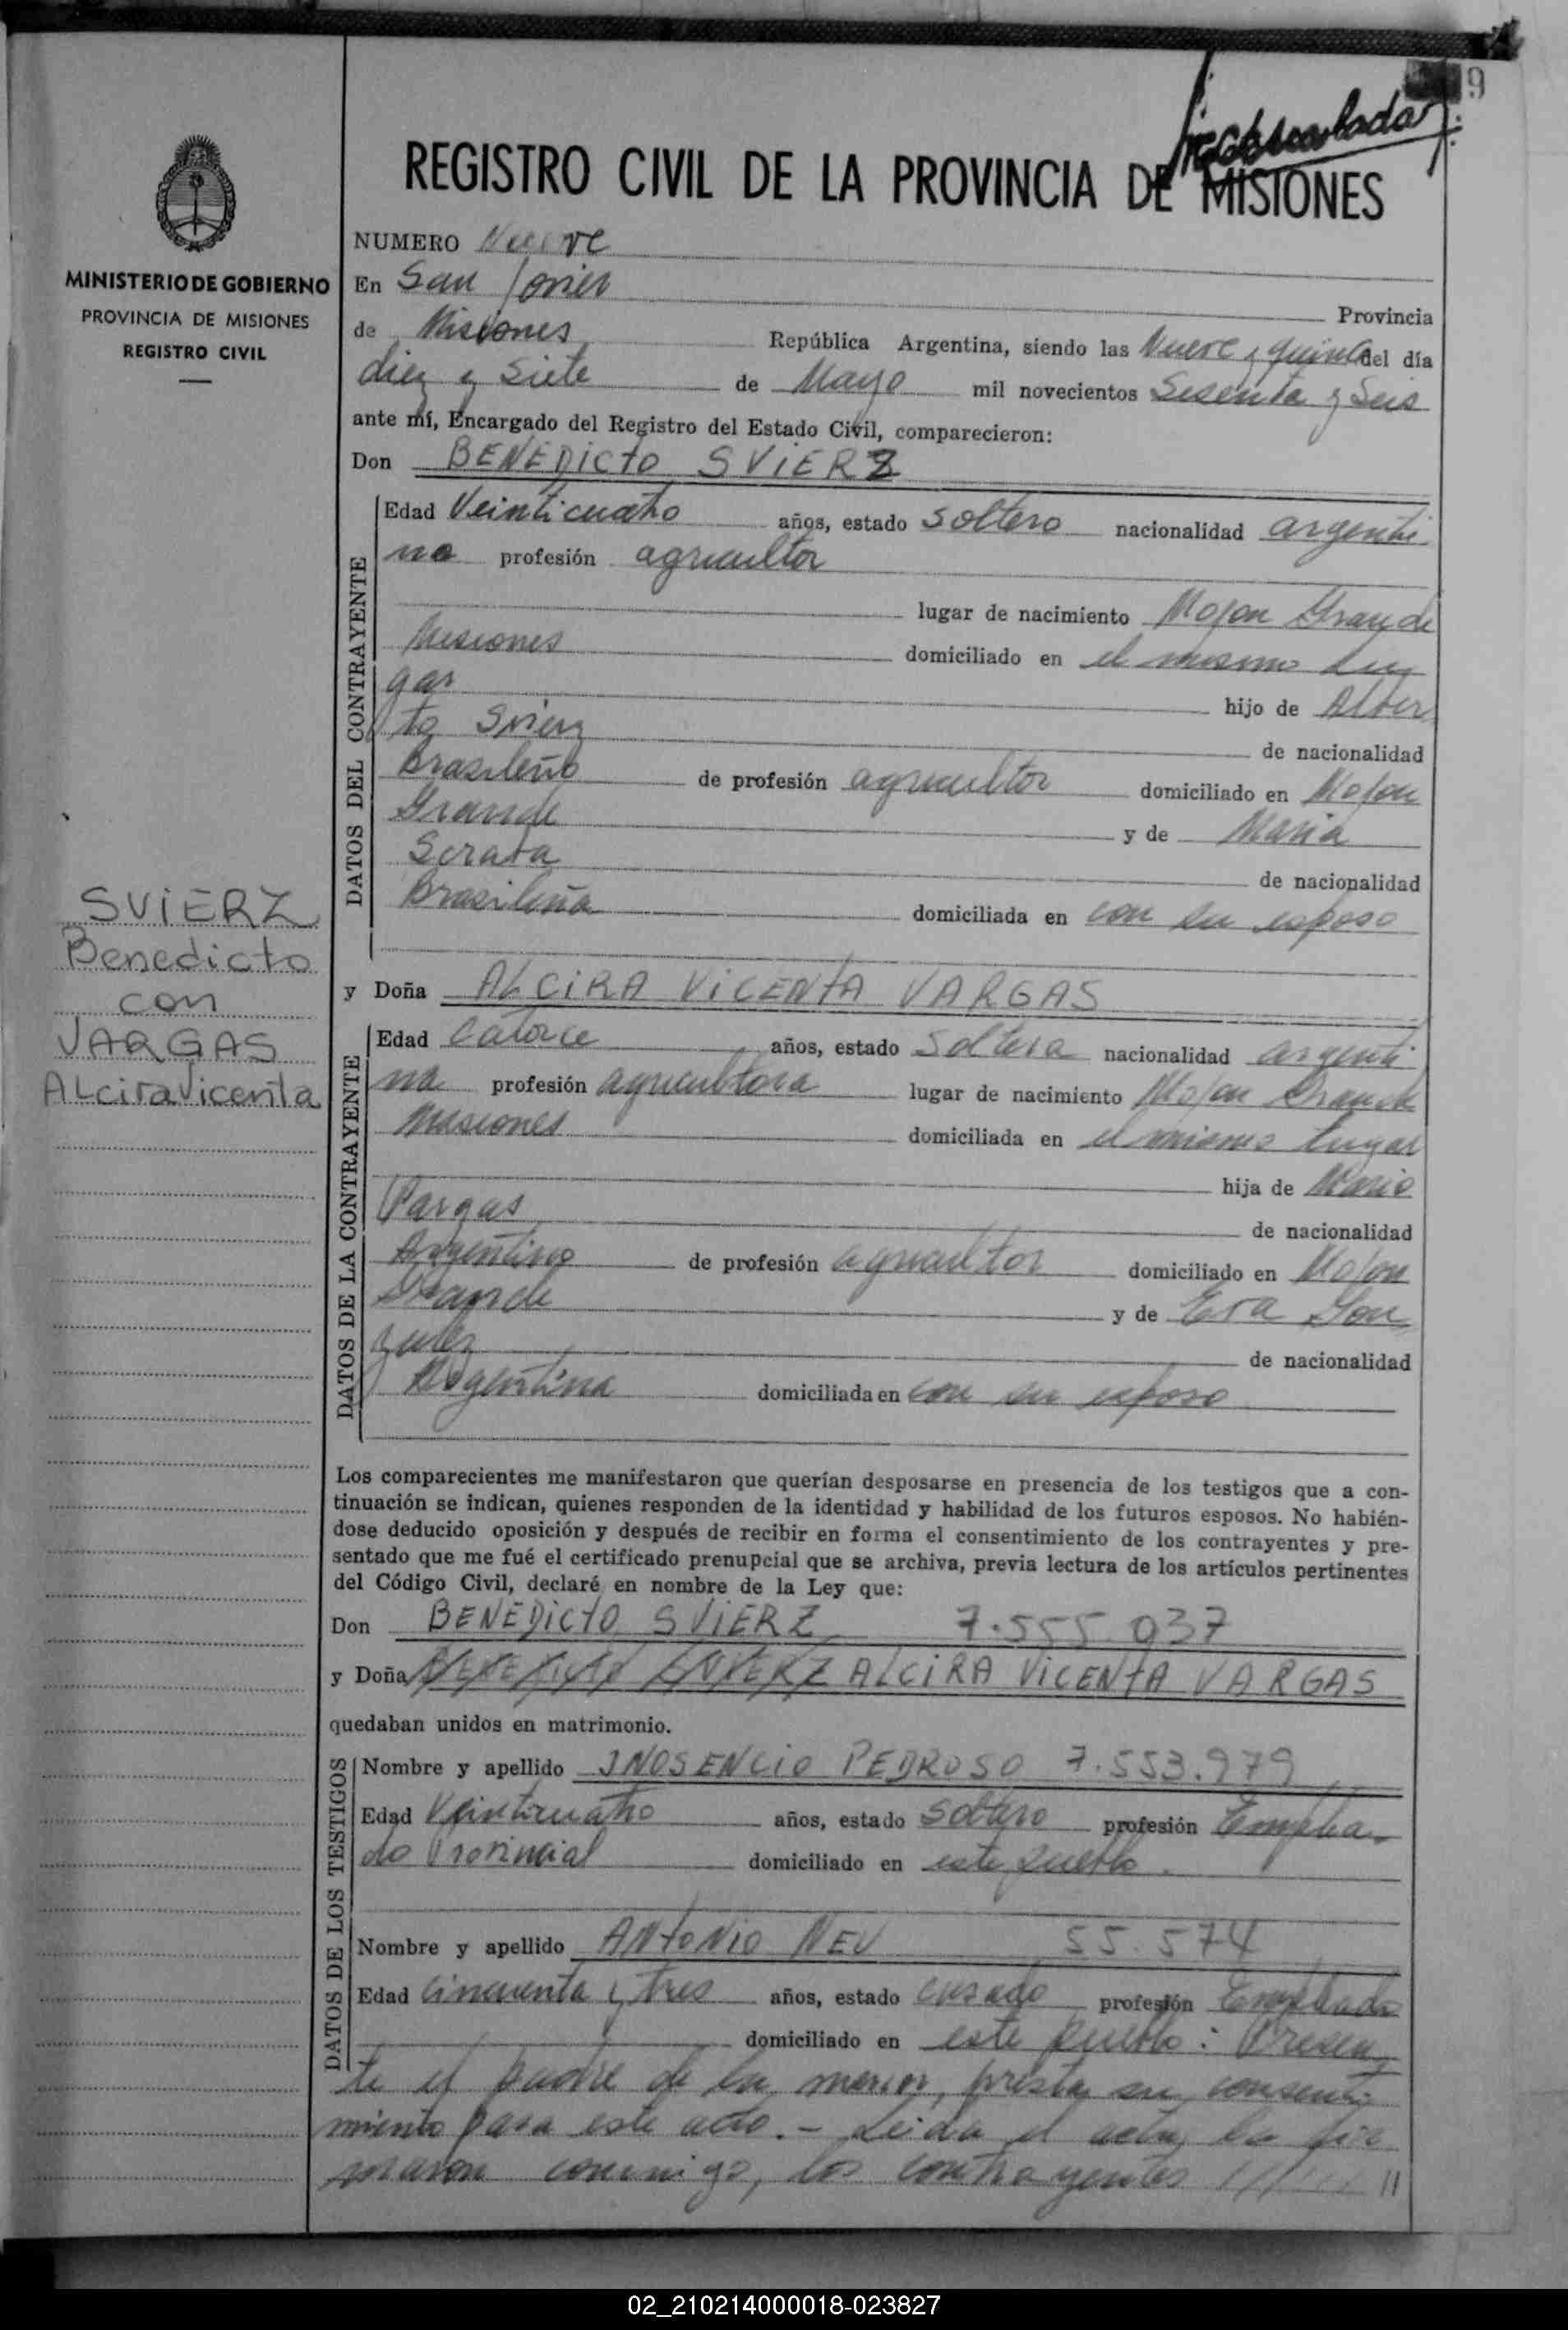 9
REGISTRO CIVIL DE LA PROVINCIA DE MISIONES
MINISTERIO DE GOBIERNO
PROVINCIA DE MISIONES
REGISTRO CIVIL
NUMERO Nueve
En San Javier
Provincia
de Misiones República Argentina, siendo las Nueve y quince del día
diez y siete de Mayo mil novecientos Sesenta y Seis
ante mí, Encargado del Registro del Estado Civil, comparecieron:
Don BENEDICTO SVIERZ
DATOS DEL CONTRAYENTE
Edad Veinticuatro años, estado soltero nacionalidad argenti
no profesión agricultor
lugar de nacimiento Mojon Grande
Misiones domiciliado en el mismo lu
gar hijo de Alber
to Svierz de nacionalidad
Brasileño de profesión agricultor domiciliado en Mojon
Grande y de Maria
Serafa de nacionalidad
Brasileña domiciliada en con su esposo
SVIERZ
Benedicto
con
VARGAS
Alcira Vicenta
y Doña ALCIRA VICENTA VARGAS
DATOS DE LA CONTRAYENTE
Edad Catorce años, estado Soltera nacionalidad argenti
na profesión agricultora lugar de nacimiento Mojon Grande
Misiones domiciliada en el mismo lugar
hija de Mario
Vargas de nacionalidad
Argentino de profesión agricultor domiciliado en Mojon
Grande y de Eva Gon
zalez de nacionalidad
Argentina domiciliada en con su esposo
Los comparecientes me manifestaron que querían desposarse en presencia de los testigos que a con-
tinuación se indican, quienes responden de la identidad y habilidad de los futuros esposos. No habién-
dose deducido oposición y después de recibir en forma el consentimiento de los contrayentes y pre-
sentado que me fué el certificado prenupcial que se archiva, previa lectura de los artículos pertinentes
del Código Civil, declaré en nombre de la Ley que:
Don BENEDICTO SVIERZ 7.555.037
y Doña BENEDICTO SVIERZ ALCIRA VICENTA VARGAS
quedaban unidos en matrimonio.
DATOS DE LOS TESTIGOS
Nombre y apellido INOSENCIO PEDROSO 7.553.979
Edad Veinticuatro años, estado Soltero profesión Emplea-
do Provincial domiciliado en este pueblo.
Nombre y apellido ANTONIO NEU 55.574
Edad Cincuenta y tres años, estado casado profesión Empleado
domiciliado en este pueblo: Presen
te el padre de la menor, presta su consenti
miento para este acto.- Leida el acta, la fir
maron conmigo, los contrayentes //////
02_210214000018-023827